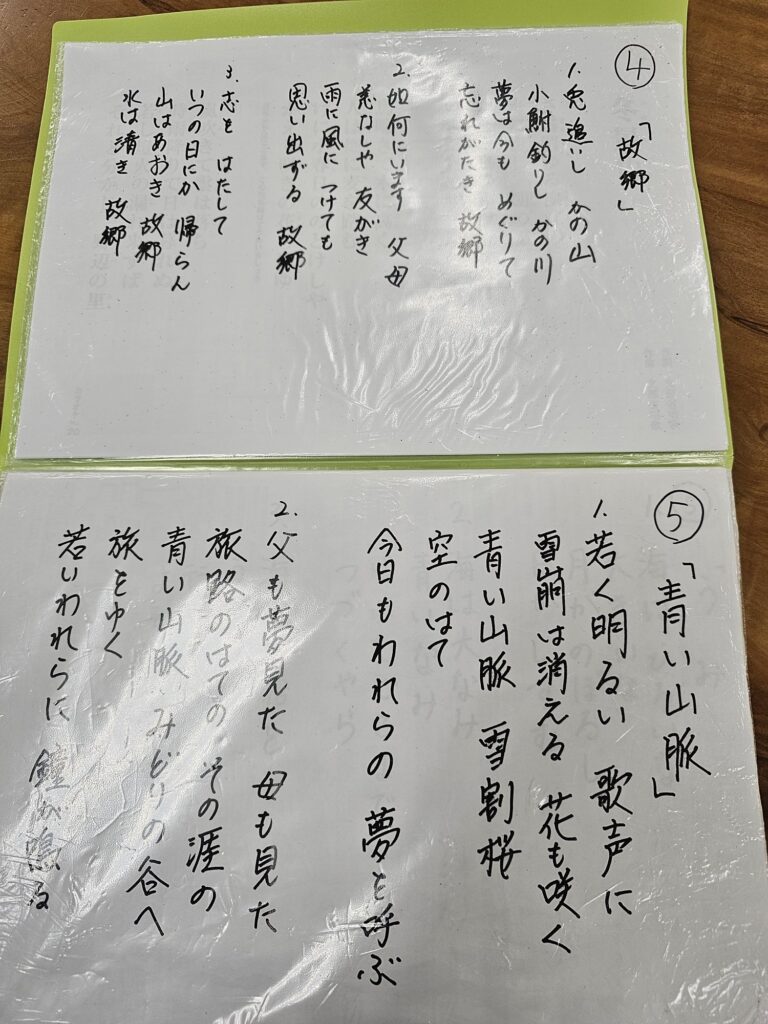 ④
「故郷」
1. 兎追いし かの山
小鮒釣りし かの川
夢は今も めぐりて
忘れがたき 故郷
2. 如何にいます 父母
恙なしや 友がき
雨に風に つけても
思い出ずる 故郷
3. 志を はたして
いつの日にか 帰らん
山はあおき 故郷
水は清き 故郷
⑤
「青い山脈」
1. 若く明るい 歌声に
雪崩は消える 花も咲く
青い山脈 雪割桜
空のはて
今日もわれらの 夢を呼ぶ
2. 父も夢見た 母も見た
旅路のはての その涯の
青い山脈 みどりの谷へ
旅をゆく
若いわれらに 鐘が鳴る